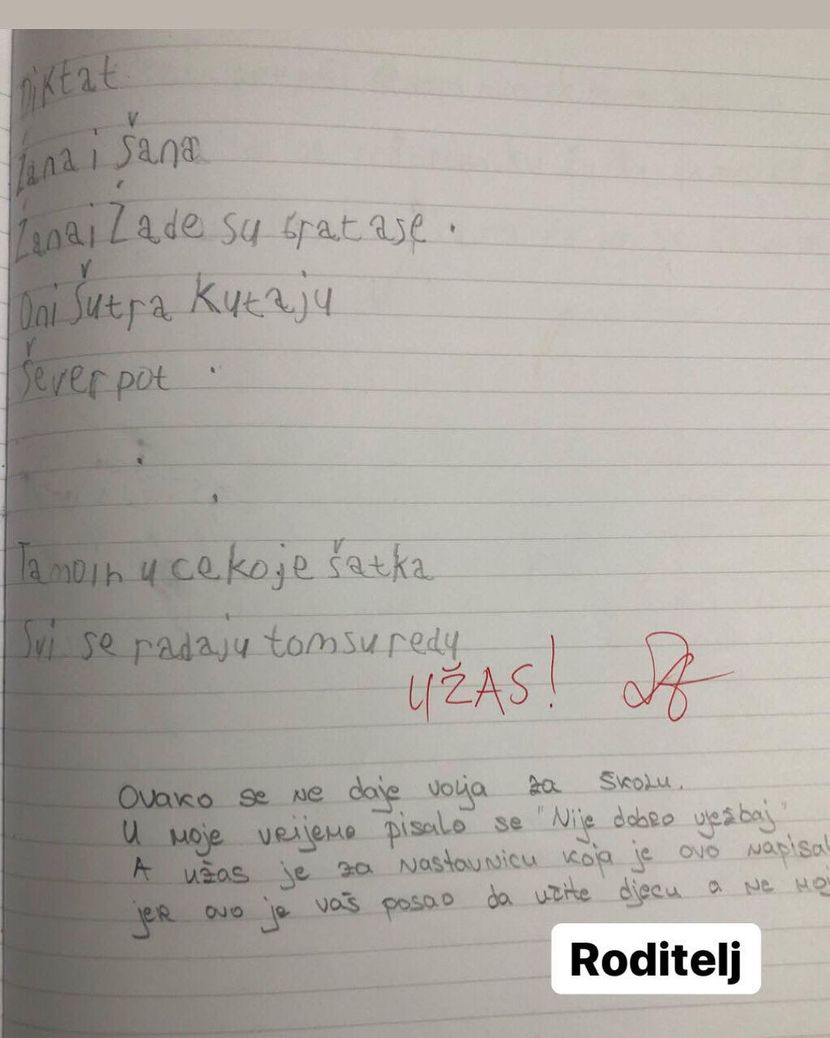 Diktat
Žana i Šana
Žana i Žade su brat a se.
Oni šutra kutaju
Šever pot.
Tamo ih u ce ko je šatka
Svi se radaju tom su redu
UŽAS!
Ovako se ne daje volja za školu.
U moje vrijeme pisalo se "Nije dobro vježbaj"
A užas je za nastavnicu koja je ovo napisal
jer ovo je vaš posao da učite djecu a ne
Roditelj